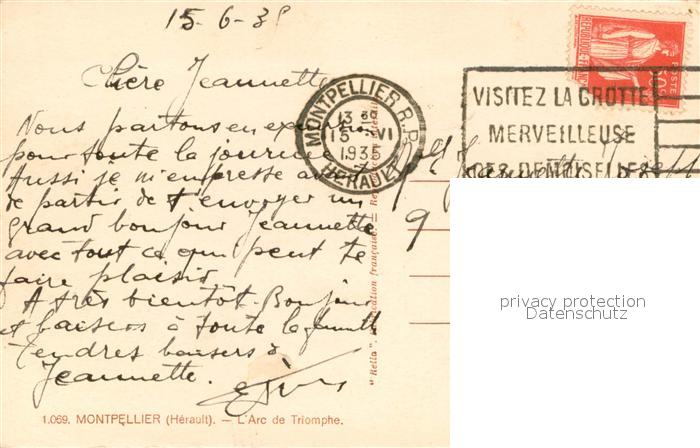 15-6-35
Chère Jeannette
Nous partons en
pour toute la journée
Aussi je m'empresse avant
de partir de t'envoyer un
grand bonjour Jeannette
avec tout ce qui peut te
faire plaisir
A très bientôt. Bonjour
et baisers à toute la famille
Tendres baisers à
Jeannette.
MONTPELLIER R.P.
13
15 VI
1935
HERAULT
REPUBLIQUE FRANÇAISE
POSTES
50c
VISITEZ LA GROTTE
MERVEILLEUSE
DES DEMOISELLES
Jeannette
9
1.069. MONTPELLIER (Hérault). — L'Arc de Triomphe.
privacy protection
Datenschutz